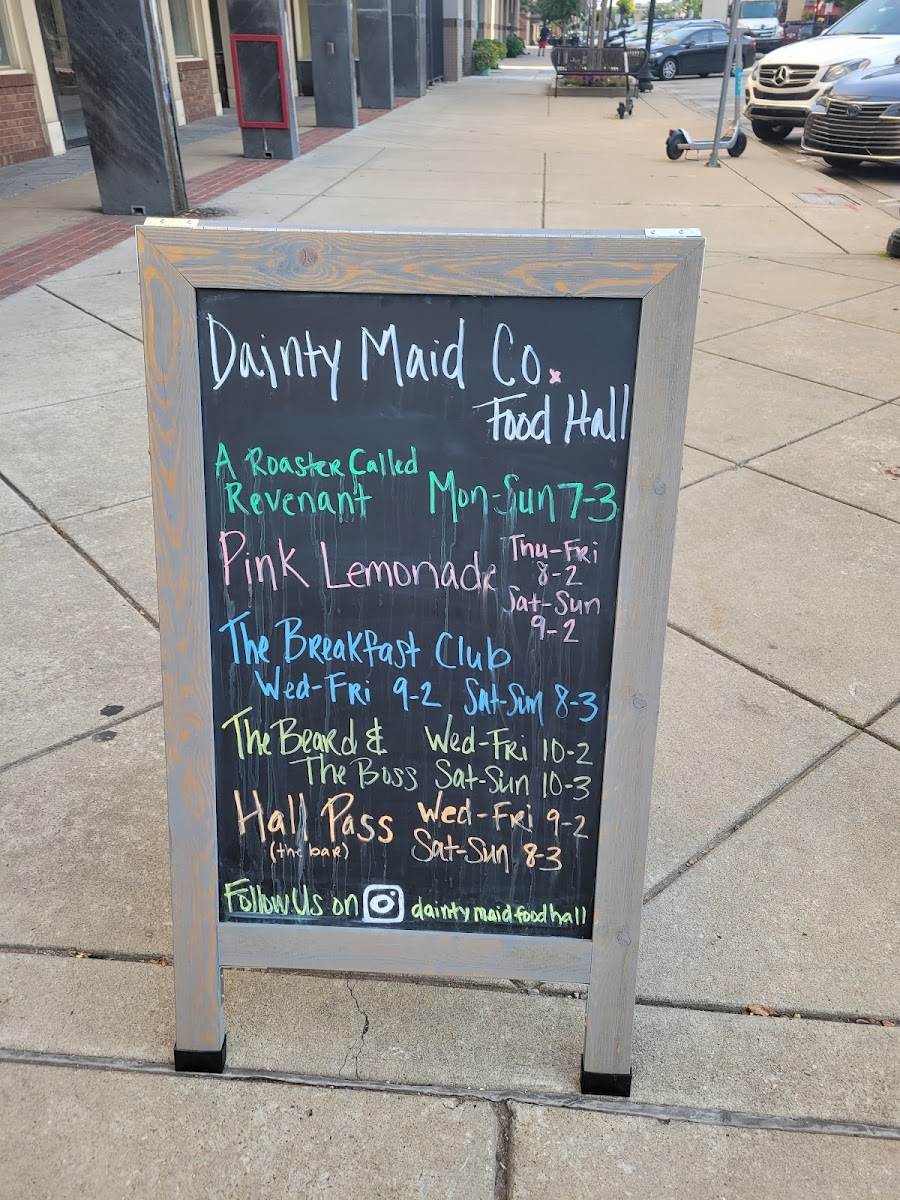 Dainty Maid Co.
Food Hall
A Roaster Called
Revenant Mon-Sun 7-3
Pink Lemonade Thu-Fri
8-2
Sat-Sun
9-2
The Breakfast Club
Wed-Fri 9-2 Sat-Sun 8-3
The Beard & Wed-Fri 10-2
The Boss Sat-Sun 10-3
Hall Pass Wed-Fri 9-2
(the bar) Sat-Sun 8-3
Follow Us on daintymaidfoodhall